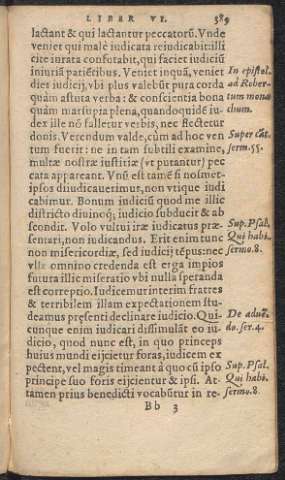 LIBER VI. 389
lactant & qui lactantur peccatorũ. Vnde
veniet qui malè iudicata reiudicabit: illi
cite iurata confutabit, qui faciet iudiciũ
iniuriã patiẽtibus. Veniet inquã, veniet
dies iudicij, vbi plus valebũt pura corda
quàm astuta verba: & conscientia bona
quàm marsupia plena, quandoquidẽ iu-
dex ille nõ falletur verbis, nec flectetur
donis. Verendum valde, cùm ad hoc ven
tum fuerit: ne in tam subtili examine,
multæ nostræ iustitiæ (vt putantur) pec
cata appareant. Vnũ est tamẽ si nosmet-
ipsos diiudicauerimus, non vtique iudi
cabimur. Bonum iudiciũ quod me illic
districto diuinoq́; iudicio subducit & ab
scondit. Volo vultui iræ iudicatus præ-
sentari, non iudicandus. Erit enim tunc
non misericordiæ, sed iudicij tẽpus: nec
vlla omnino credenda est erga impios
futura illic miseratio vbi nulla speranda
est correptio. Iudicemur interim fratres
& terribilem illam expectationem stu-
deamus presenti declinare iudicio. Qui-
cunque enim iudicari dissimulãt eo iu-
dicio, quod nunc est, in quo princeps
huius mundi eijcietur foras, iudicem ex
pectent, vel magis timeant à quo cũ ipso
principe suo foris eijcientur & ipsi. At-
tamen prius benedicti vocabũtur in re-
Bb 3
In epistol.
ad Rober-
tum mona
chum.
Super Cãt.
serm. 55.
Sup. Psal.
Qui habi.
sermo. 8.
De aduẽ.
do. ser. 4.
Sup. Psal.
Qui habi.
sermo. 8.